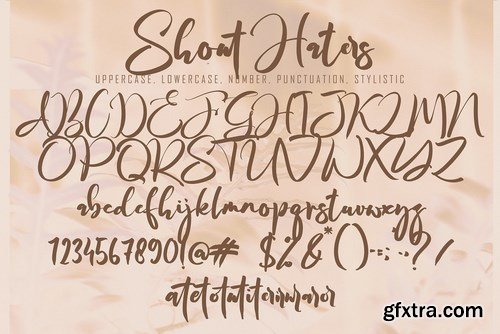 Shout Haters
UPPERCASE, LOWERCASE, NUMBER, PUNCTUATION, STYLISTIC
ABCDEFGHIJKLMN
OPQRSTUVWXYZ
abcdefghijklmnopqrstuvwxyz
1234567890!@# $%&*()-:;"?/
gfxtra.com